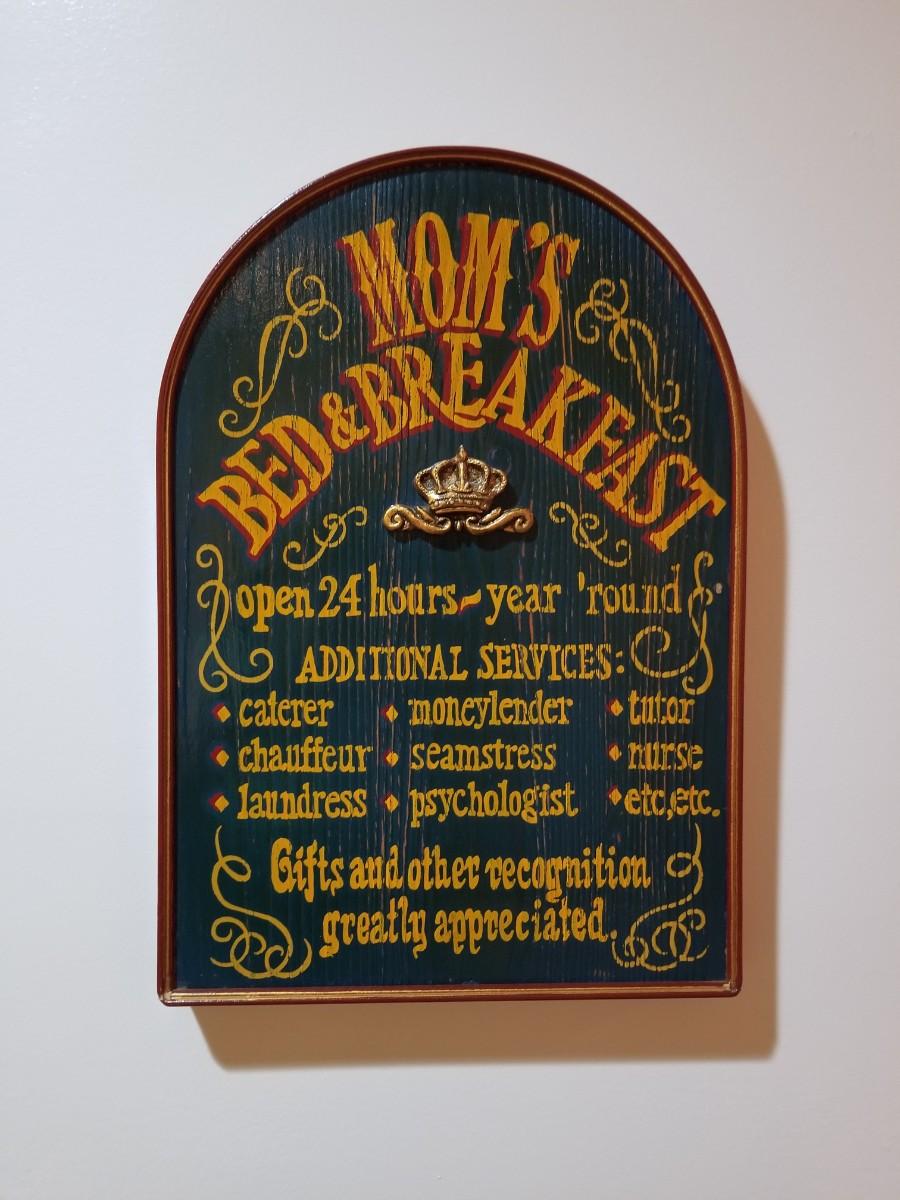 MOM'S
BED & BREAKFAST
open 24 hours - year 'round
ADDITIONAL SERVICES:
• caterer • moneylender • tutor
• chauffeur • seamstress • nurse
• laundress • psychologist • etc,etc.
Gifts and other recognition
greatly appreciated.